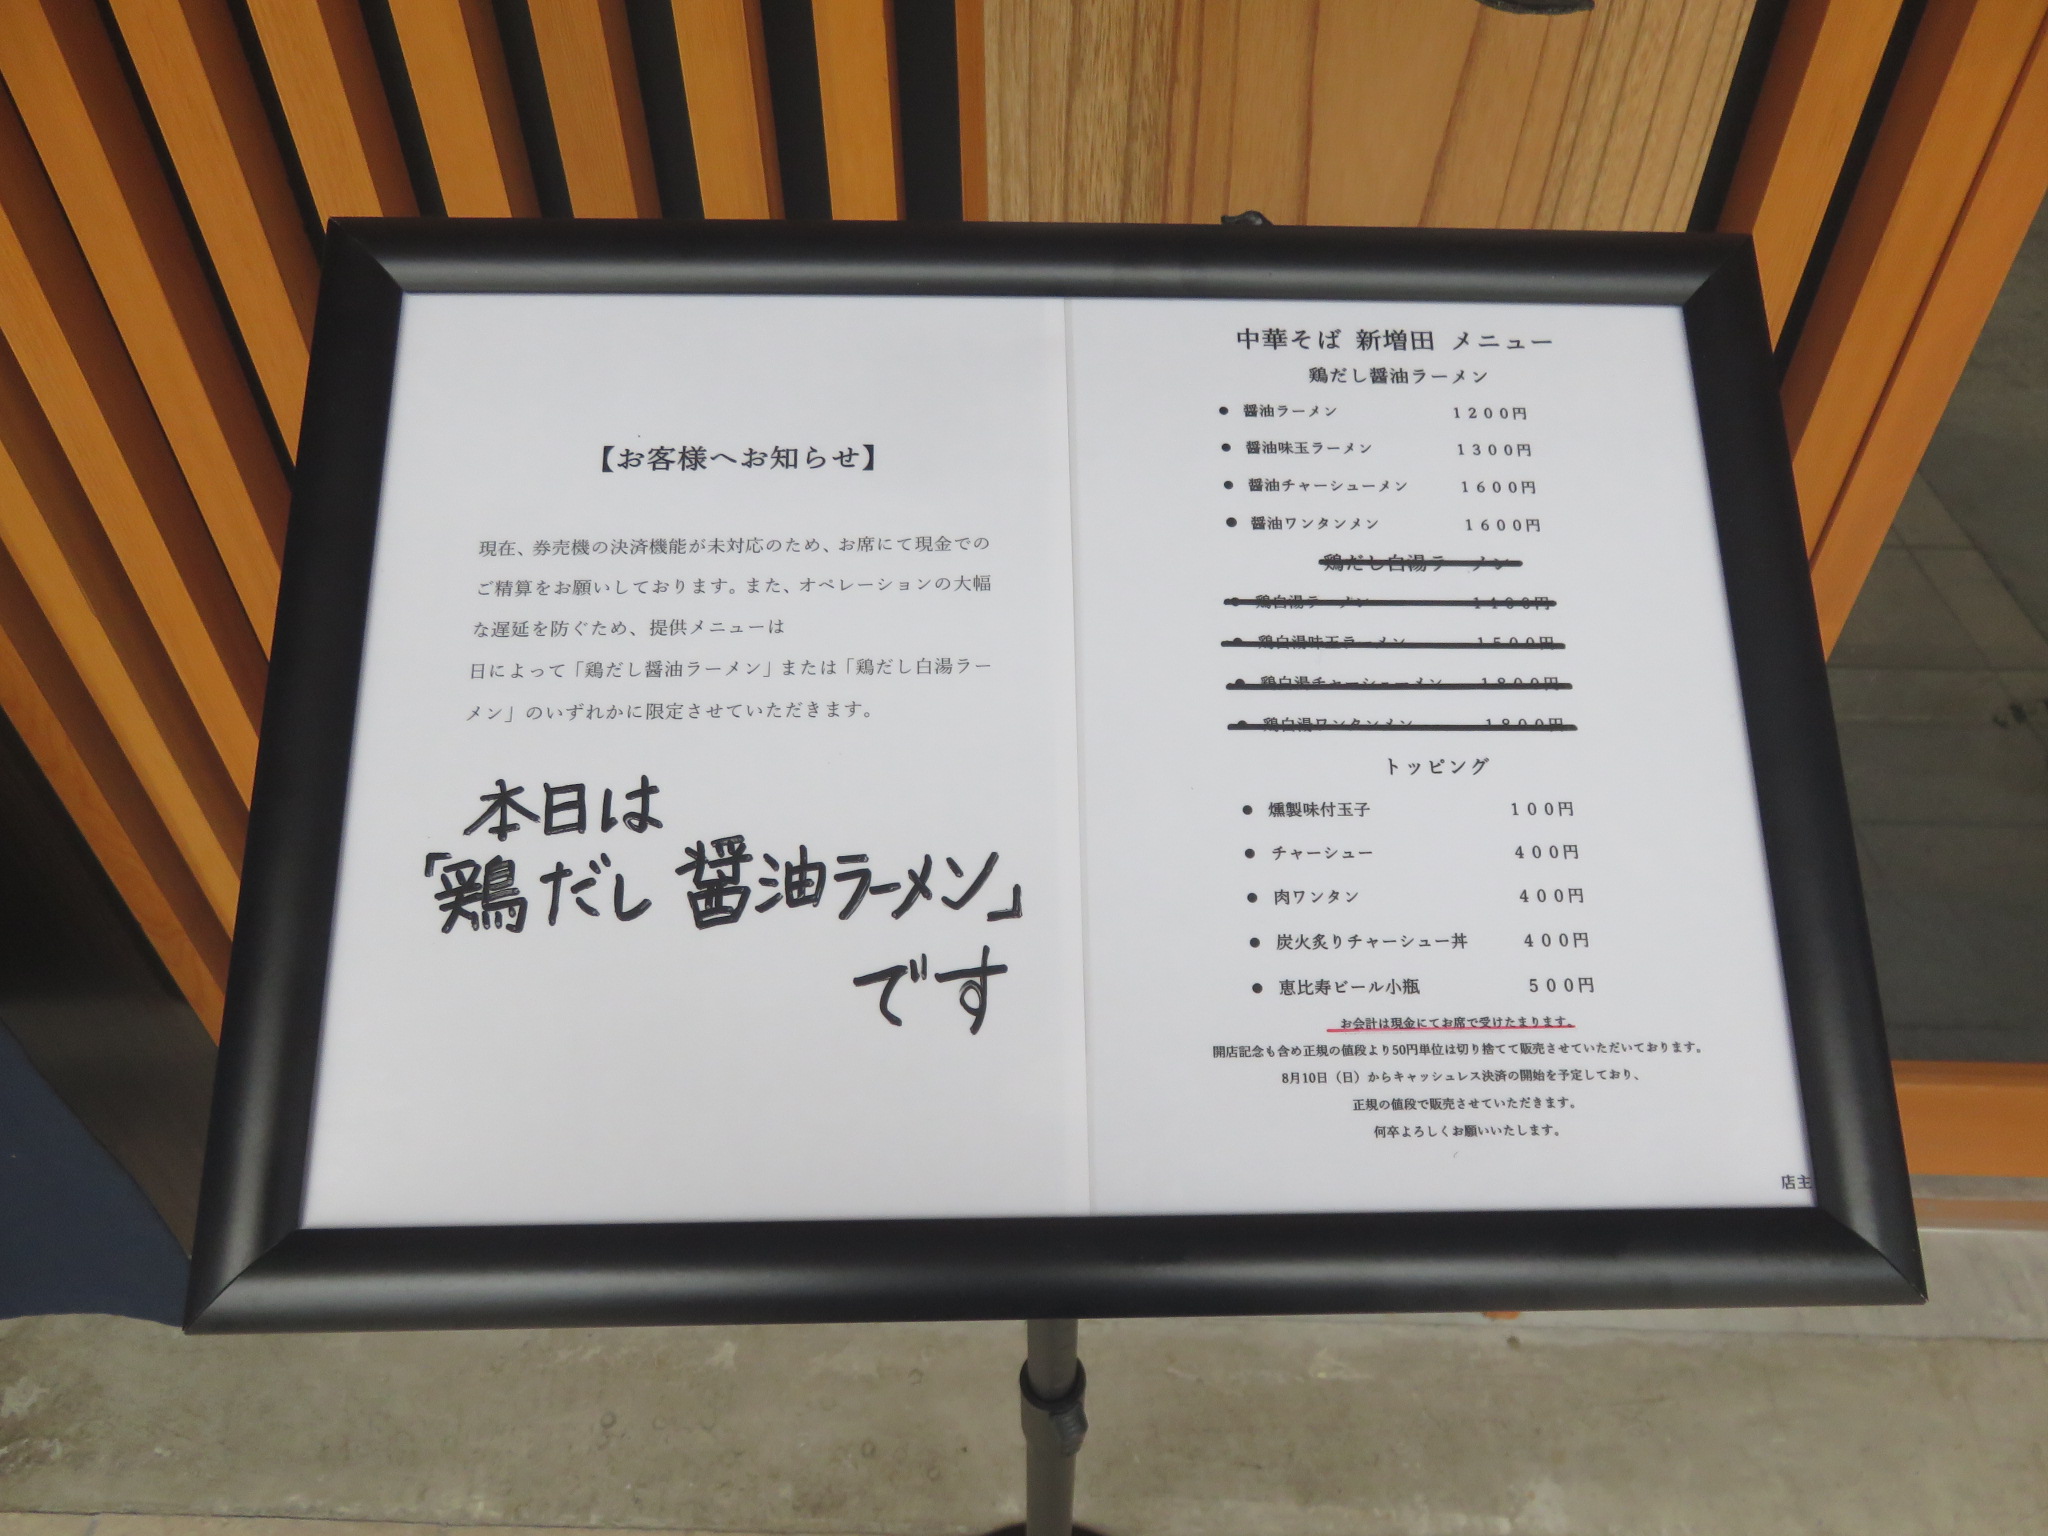 【お客様へお知らせ】
現在、券売機の決済機能が未対応のため、お席にて現金での
ご精算をお願いしております。また、オペレーションの大幅
な遅延を防ぐため、提供メニューは
日によって「鶏だし醤油ラーメン」または「鶏だし白湯ラー
メン」のいずれかに限定させていただきます。
本日は
「鶏だし醤油ラーメン」
です
中華そば 新増田 メニュー
鶏だし醤油ラーメン
● 醤油ラーメン 1200円
● 醤油味玉ラーメン 1300円
● 醤油チャーシューメン 1600円
● 醤油ワンタンメン 1600円
鶏だし白湯ラーメン
● 鶏白湯ラーメン 1400円
● 鶏白湯味玉ラーメン 1500円
● 鶏白湯チャーシューメン 1800円
● 鶏白湯ワンタンメン 1800円
トッピング
● 燻製味付玉子 100円
● チャーシュー 400円
● 肉ワンタン 400円
● 炭火炙りチャーシュー丼 400円
● 恵比寿ビール小瓶 500円
お会計は現金にてお席で受けたまります。
開店記念も含め正規の値段より50円単位は切り捨てて販売させていただいております。
8月10日（日）からキャッシュレス決済の開始を予定しており、
正規の値段で販売させていただきます。
何卒よろしくお願いいたします。
店主